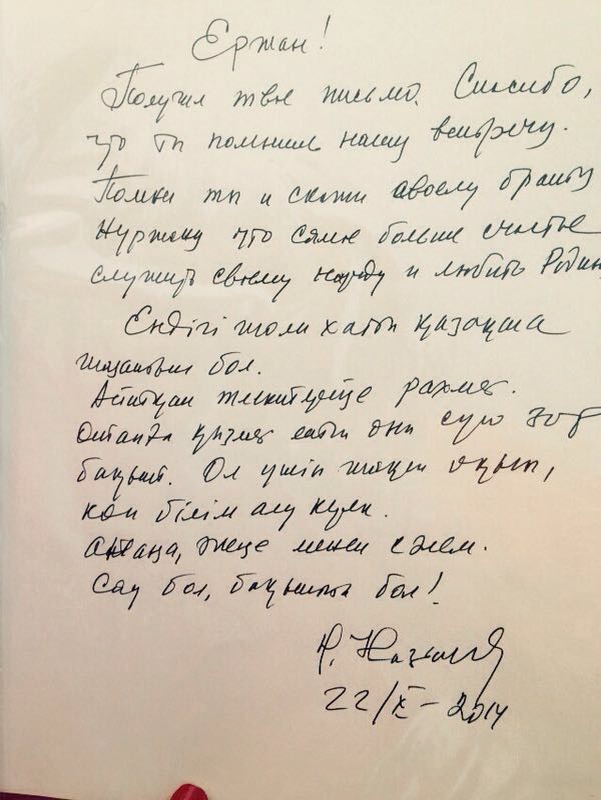 Ержан!
Получил твое письмо. Спасибо,
что ты помнишь нашу встречу.
Помни ты и скажи своему брату
Нуржану что самое больше счастье
служить своему народу и любить Родину
Ендігі жолы хатты қазақша
жазатын бол.
Айтқан тілектеріңе рахмет.
Отанға қызмет ету оны сүю зор
бақыт. Ол үшін жақсы оқып,
көп білім алу керек.
Атаңа, әжеңе менен сәлем.
Сау бол, бақытты бол!
Н. Назарбаев
22/X-2014